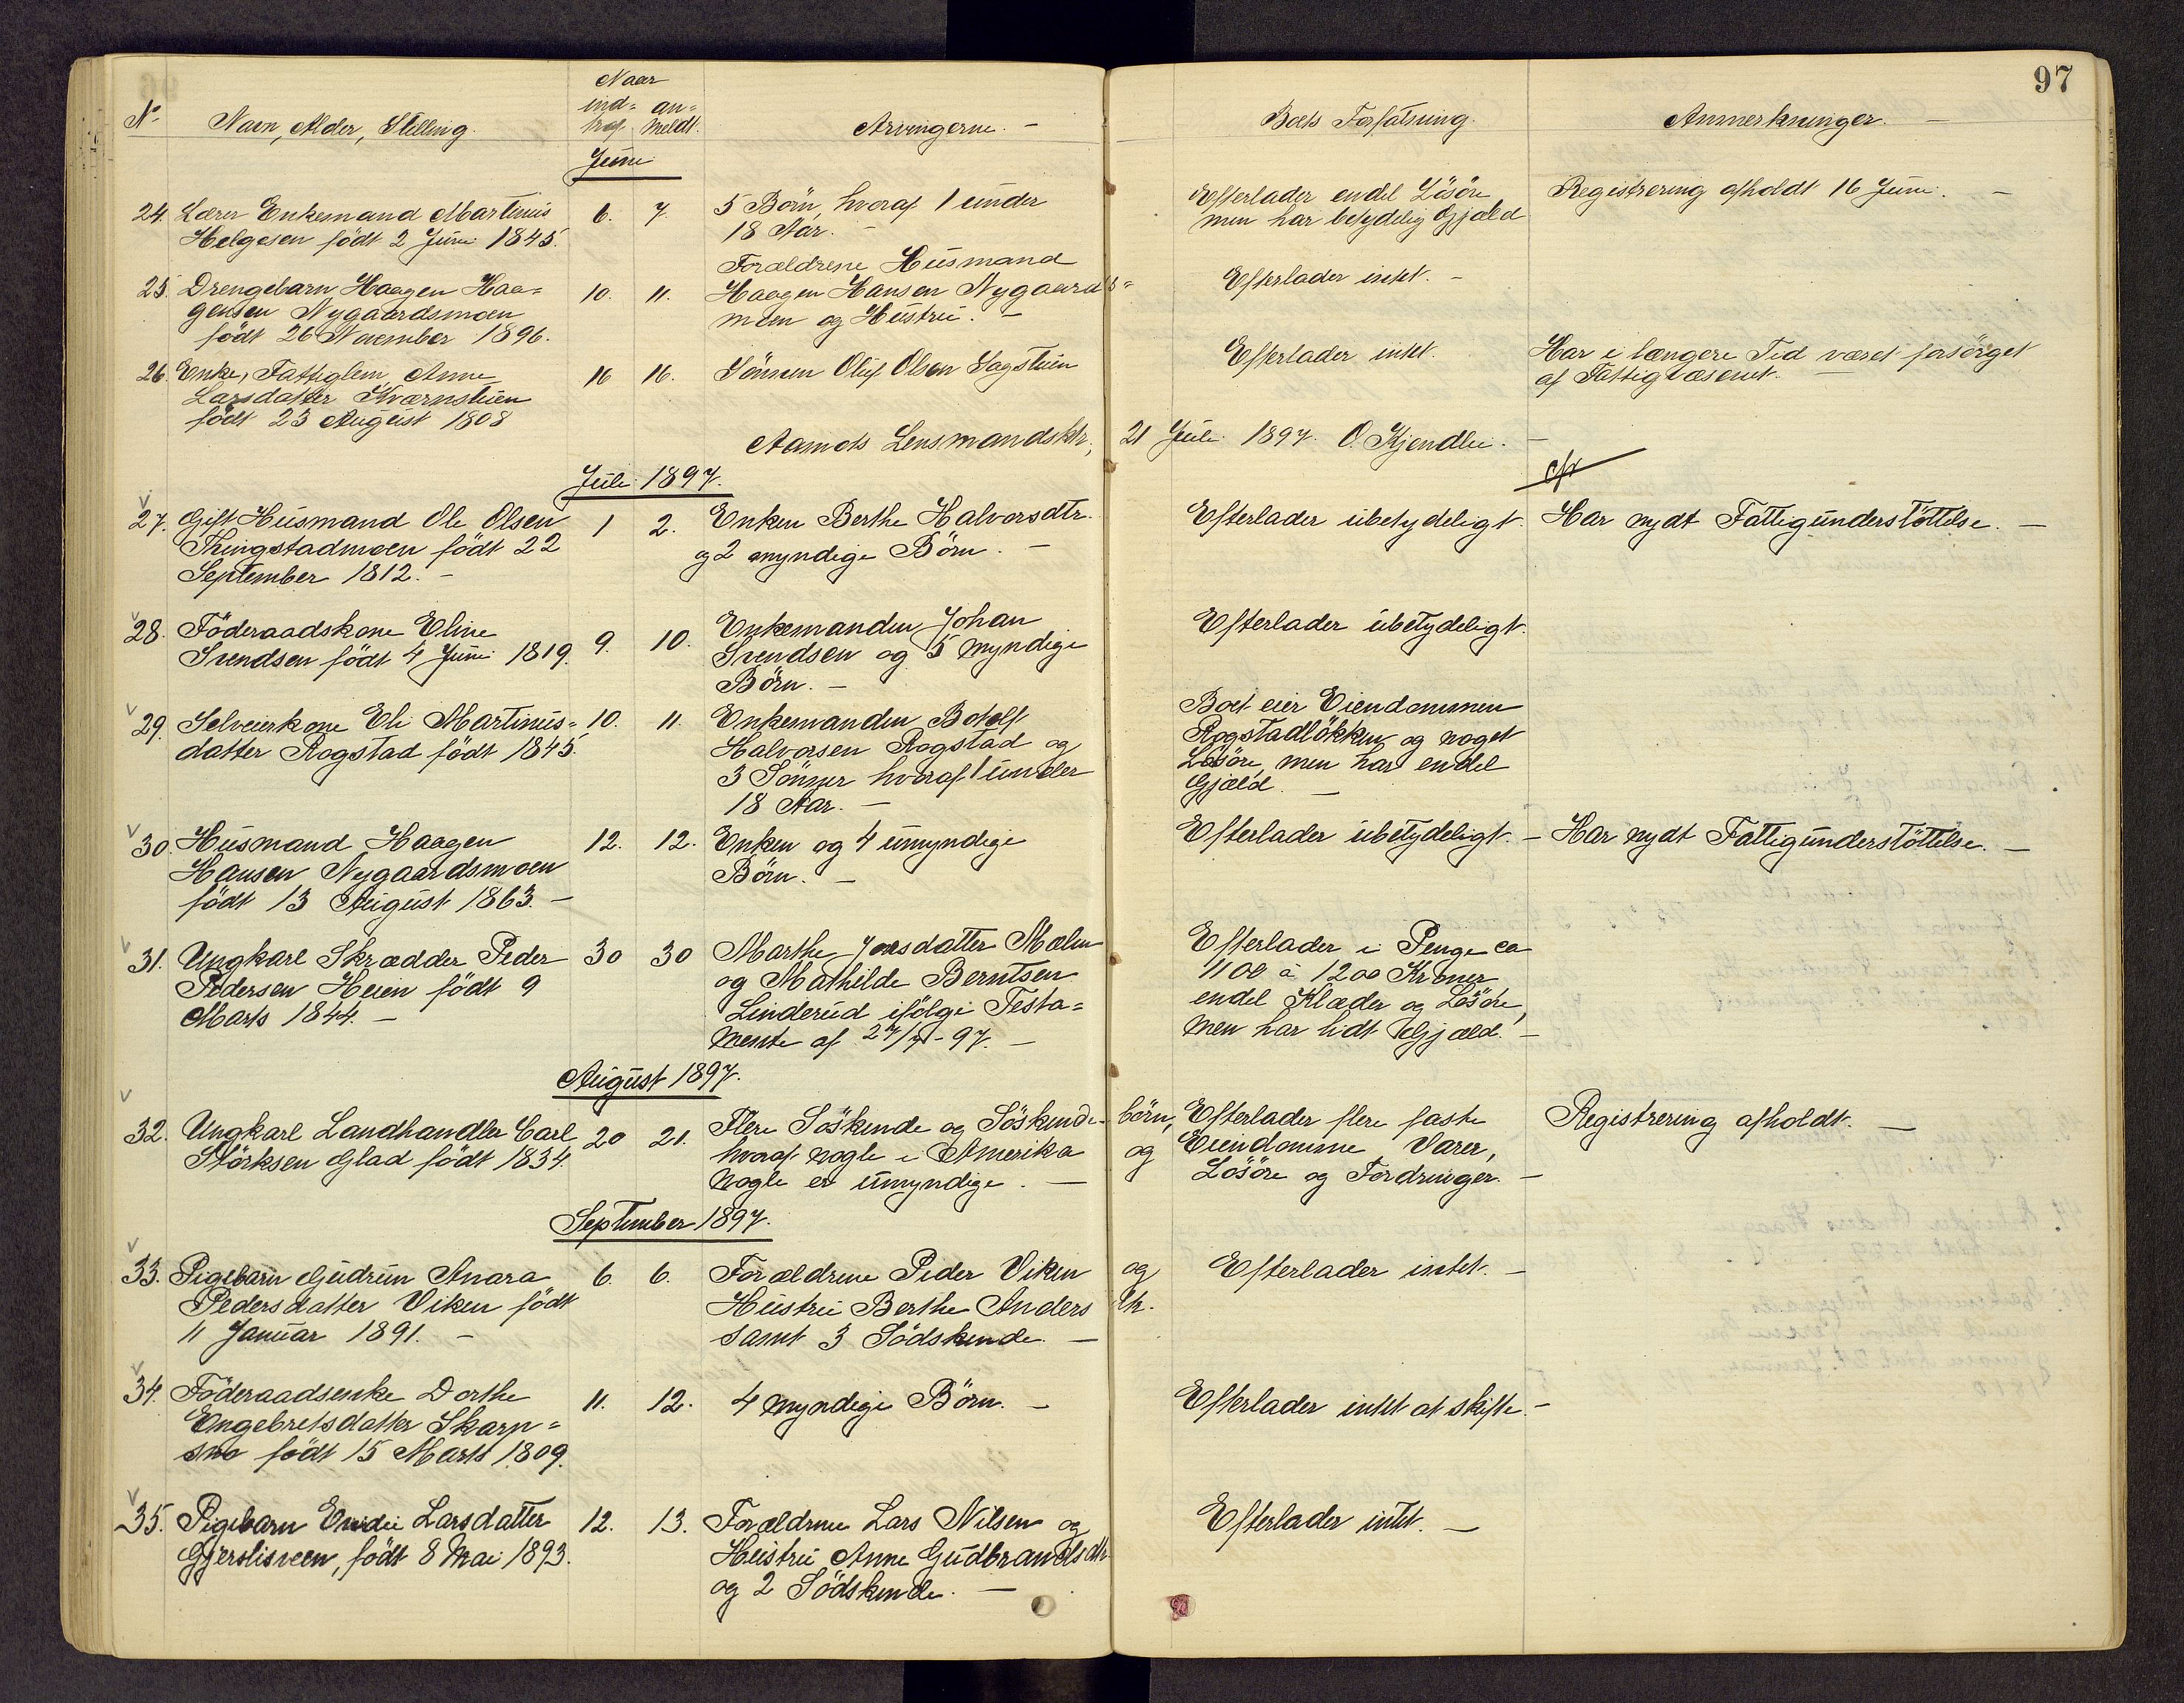 97
No Navn, Alder, Stilling. Naar ind= traf an= meldt. Arvingerne. — Boets Forfatning. Anmerkninger. —
Juni
24. Lærer Enkemand Martinus 6. 7. 5 Börn, hvoraf 1 under Efterlader endel Lösöre Registrering afholdt 16 Juni. —
Helgesen födt 2 Juni 1845. 18 Aar. — men har betydelig Gjæld
25. Drengebarn Haagen Haa= 10. 11. Forældrene Husmand Efterlader intet. —
gensen Nygaardsmoen Haagen Hansen Nygaards=
födt 26 November 1896. moen og Hustru. —
26. Enke, Fattiglem Anne 16 16. Sönnen Oluf Olsen Sagstuen Efterlader intet. Har i længere Tid været forsörget
Larsdatter Kværnstuen af Fattigvæsenet. —
födt 23 August 1808
Aamots Lensmandsktr., 21 Juli 1897. O. Kjendlie. —
cfr
Juli 1897.
27. Gift Husmand Ole Olsen 1 2. Enken Berthe Halvorsdtr. Efterlader ubetydeligt. Har nydt Fattigunderstöttelse. —
Thingstadmoen födt 22 og 2 myndige Börn. —
September 1812. —
28. Föderaadskone Eline 9. 10. Enkemanden Johan Efterlader ubetydeligt.
Svendsen födt 4 Juni 1819. Svendsen og 5 myndige
Börn. —
29. Selveierkone Eli Martinus= 10. 11. Enkemanden Botolf Boet eier Eiendommen
datter Rogstad födt 1845. Halvorsen Rogstad og Rogstadlökken og noget
3 Sönner hvoraf 1 under Lösöre, men har endel
18 Aar. — Gjæld. —
30. Husmand Haagen 12. 12. Enken og 4 umyndige Efterlader ubetydeligt. — Har nydt Fattigunderstöttelse. —
Hansen Nygaardsmoen Börn. —
födt 13 August 1863. —
31. Ungkarl Skrædder Peder 30 30 Marthe Jonsdatter Malm Efterlader i Penge ca
Pedersen Heien födt 9 og Mathilde Berntsen 1100 à 1200 Kroner
Marts 1844. — Linderud ifölge Testa= endel Klæder og Lösöre,
mente af 27/7-97. — men har lidt Gjæld. —
August 1897.
32. Ungkarl Landhandler Carl 20 21. Flere Söskende og Söskende- börn, Efterlader flere faste Registrering afholdt. —
Störksen Glad födt 1834. hvoraf nogle i Amerika og Eiendomme Varer,
nogle er umyndige. — Lösöre og Fordringer. —
September 1897.
33. Pigebarn Gudrun Anara 6. 6. Forældrene Peder Viken og Efterlader intet. —
Pedersdatter Viken födt Hustru Berthe Anders dtr.
11 Januar 1891. — samt 3 Södskende. —
34. Föderaadsenke Dorthe 11. 12. 4 myndige Börn. — Efterlader intet at skifte. —
Engebretsdatter Skarp=
sno födt 15 Marts 1809.
35. Pigebarn Larsdatter 12. 13. Forældrene Lars Nilsen og Efterlader intet. —
födt 8 Mai 1893. Hustru Anne Gudbrandsdtr.
og 2 Södskende. —